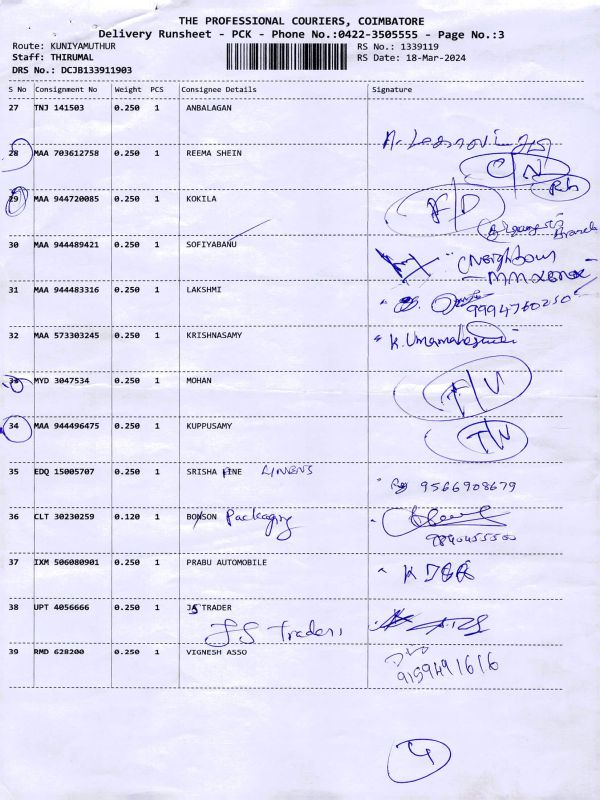 THE PROFESSIONAL COURIERS, COIMBATORE
Delivery Runsheet - PCK - Phone No.:0422-3505555 - Page No.:3
Route: KUNIYAMUTHUR RS No.: 1339119
Staff: THIRUMAL RS Date: 18-Mar-2024
DRS No.: DCJB133911903
S No Consignment No Weight PCS Consignee Details Signature
27 TNJ 141503 0.250 1 ANBALAGAN
28 MAA 703612758 0.250 1 REEMA SHEIN
C/N
29 MAA 944720085 0.250 1 KOKILA
F/D
Branch
30 MAA 944489421 0.250 1 SOFIYABANU
Neighbour
31 MAA 944483316 0.250 1 LAKSHMI
9994760250
32 MAA 573303245 0.250 1 KRISHNASAMY
K. Umamaheswari
33 MYD 3047534 0.250 1 MOHAN
34 MAA 944496475 0.250 1 KUPPUSAMY
35 EDQ 15005707 0.250 1 SRISHA FINE LINENS
9566908679
36 CLT 30230259 0.120 1 BONSON Packaging
9840455500
37 IXM 506080901 0.250 1 PRABU AUTOMOBILE
38 UPT 4056666 0.250 1 JS TRADER
JS Traders
39 RMD 628200 0.250 1 VIGNESH ASSO
9159491616
4